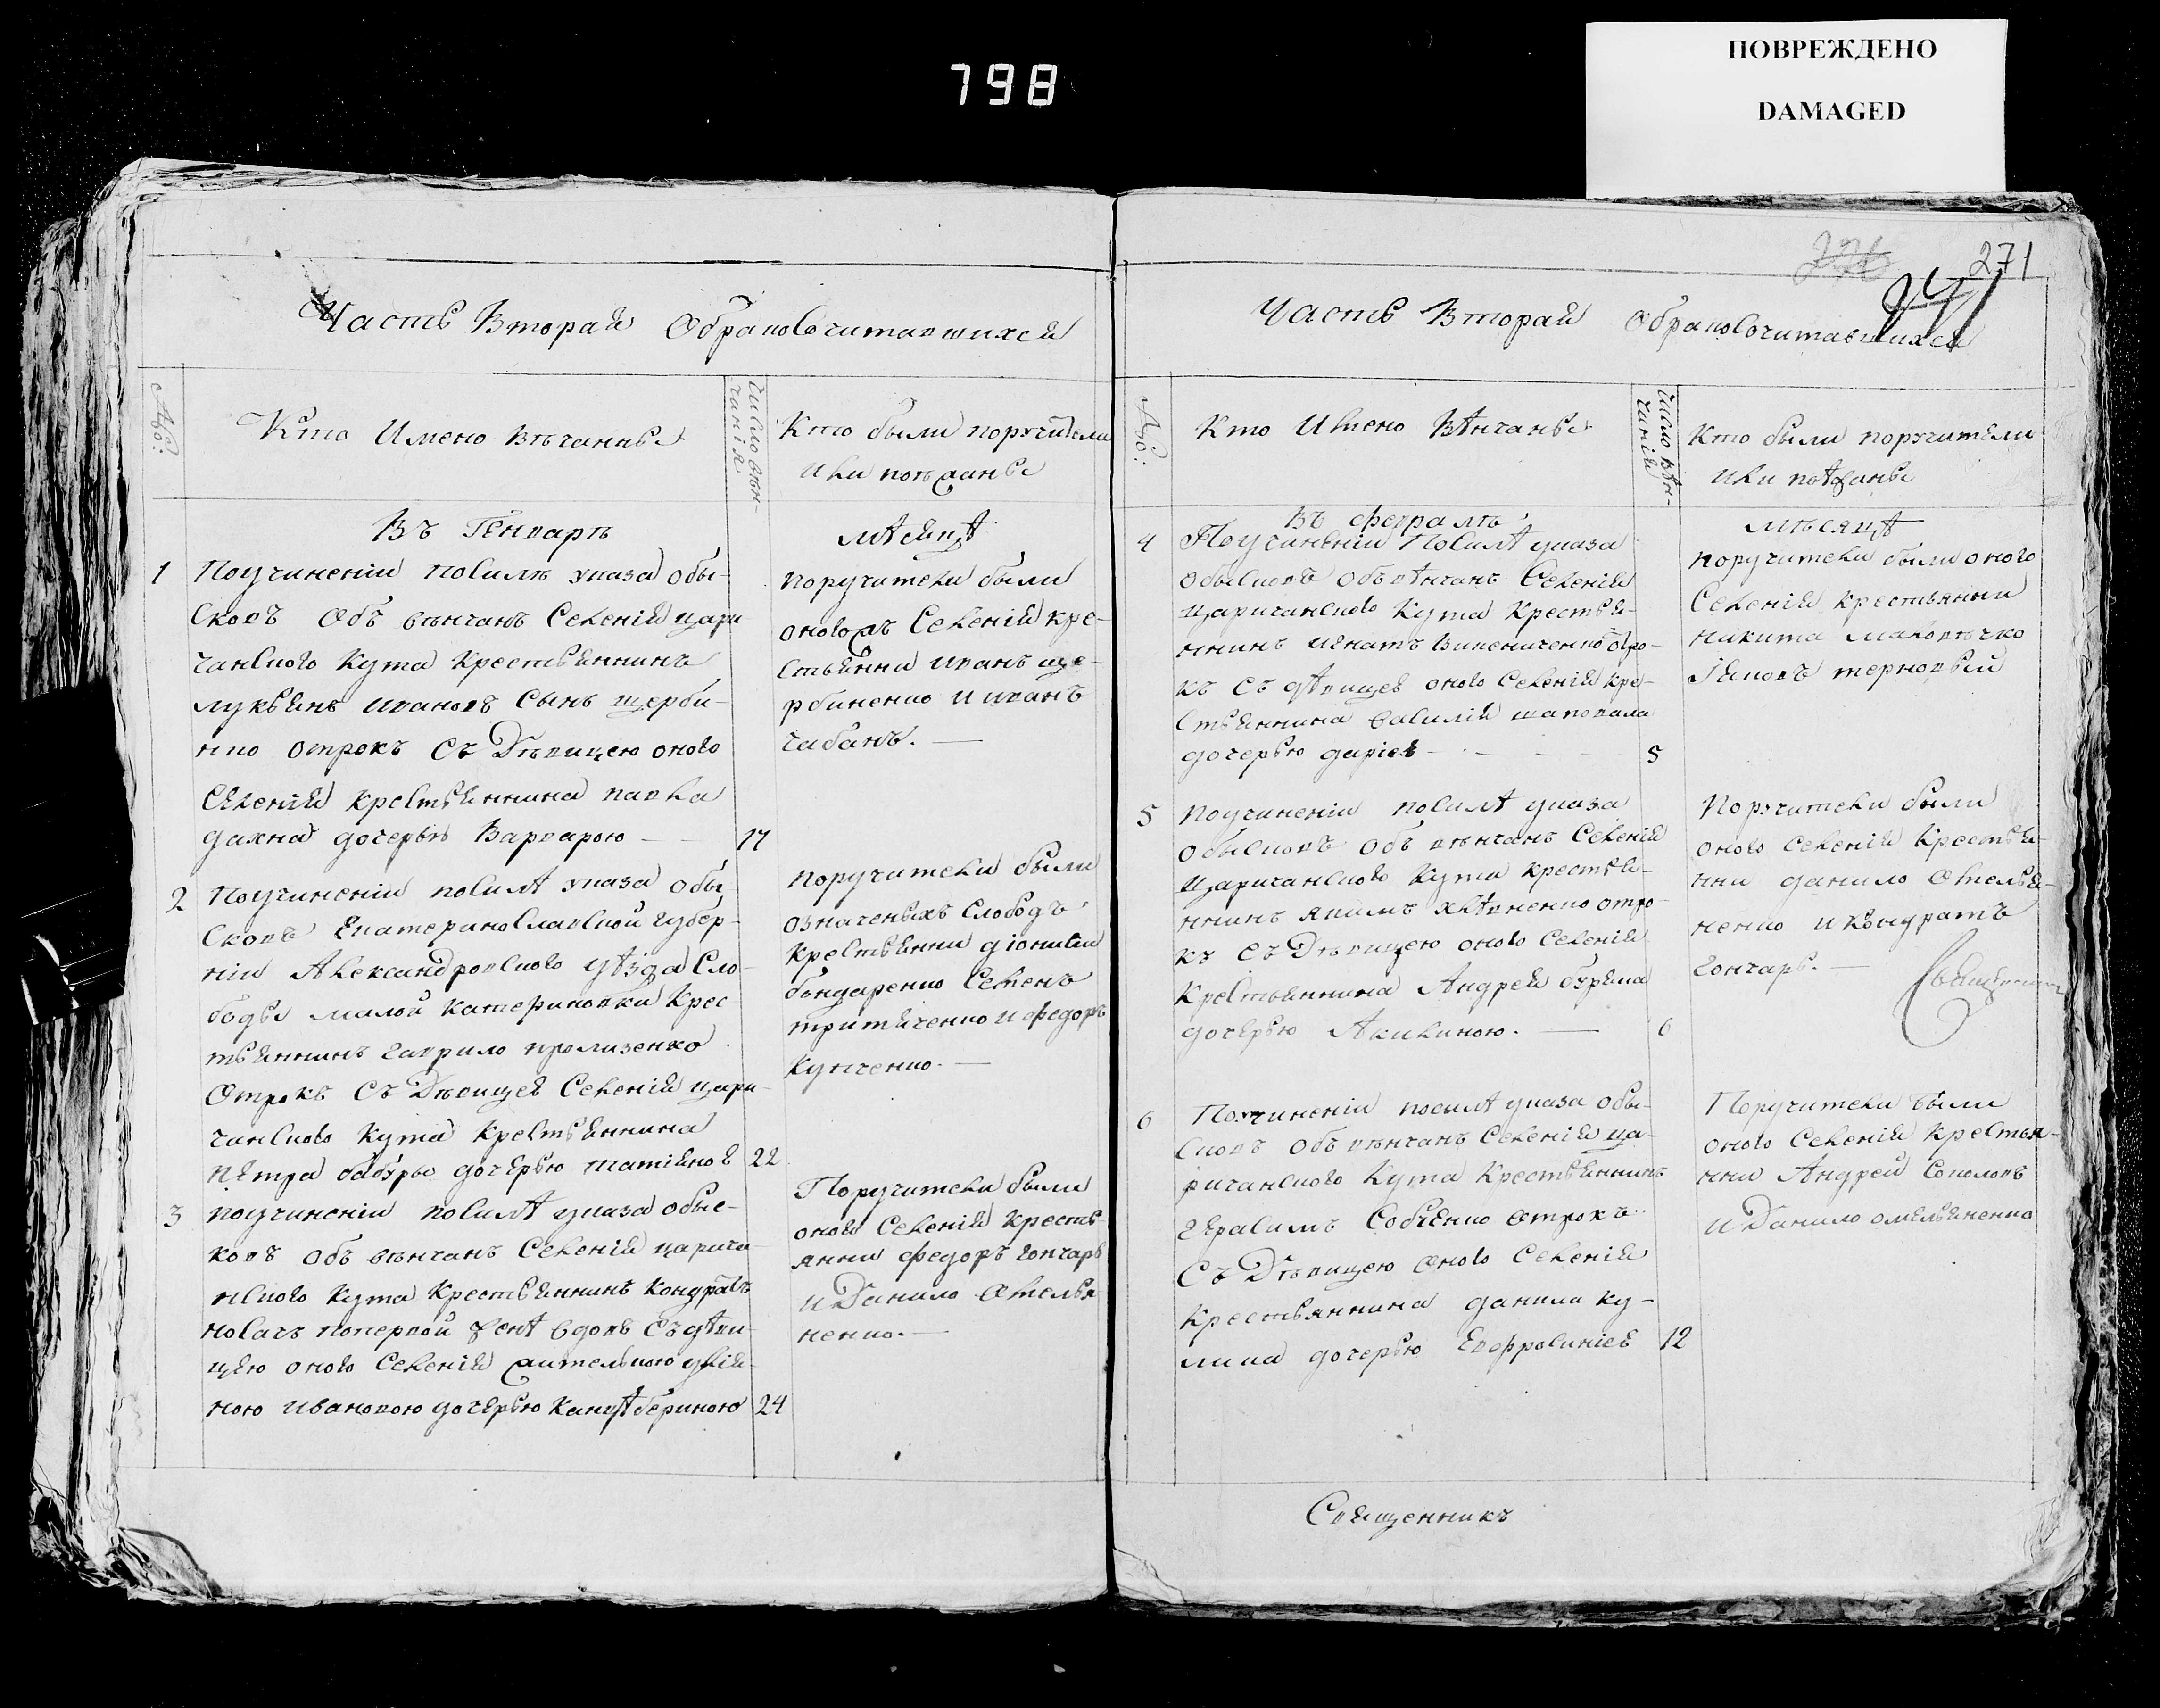 798
ПОВРЕЖДЕНО
DAMAGED
271
Часть Вторая Обраковочитавшихся
Кто Имено вѣчанъы
Число вѣн-
чанія
Кто были поручители
Или поѣзанъы
Въ Генварѣ
мѣсяцѣ
1 Поучиненіи посилѣ указа обы-
сковъ Объ вѣнчанъ Селенія цари
чанского Кута Крестьяннинъ
лукьянъ ивановъ сынъ щерби-
нко отрокъ Съ Дѣвицею оного
Селенія крестьяннина павла
дахна дочерью Варварою 17
поручители были
оного Селенія кре-
стьянни иванъ ще-
рбиненко и иванъ
чабанъ.
2 Поучиненіи посилѣ указа обы
сковъ Екатеринославской губер-
ніи Александровского уѣзда Сло-
боды малой катериновки Крес
тьяннинъ гаврило
Отрокъ Съ Дѣвицев Селенія цари-
чанского Кута Крестьяннина
Петра бабуры дочерью татіяною 22
поручители были
означеныхъ Слободъ
крестьянни діонисій
бондаренко Семенъ
и федоръ
Кумченко.
3 поучиненіи посилѣ указа обыс-
ковъ объ вѣнчанъ Селенія царича-
нского Кута Крестьяннинъ Кондратъ
носачъ поперво́й женѣ вдовъ Съ дѣви-
цею оного Селенія
ною ивановою дочерью 24
Поручители были
оного Селенія кресть
янни федоръ гончаръ
и Данило Омелья
ненко.
Часть Вторая Обраковочитавшихся
Кто Имено вѣнчанъы
Число вѣн-
чанія
Кто были поручители
Или поѣзанъы
Въ февралѣ
мѣсяцѣ
4 Поучиненіи Посилѣ указа
обысковъ объвѣнчанъ Селенія
царичанского Кута крестья-
ннинъ игнатъ отро-
къ съ дѣвицев оного Селенія кре-
стьяннина василія шаповала
дочерью даріев 5
поручители были оного
Селенія крестьянни
никита маловѣчко
Яковъ терновый
5 поучиненіи посилѣ указа
обысковъ объ вѣнчанъ Селенія
Царичанского Кута крестья-
ннинъ якимъ отро-
къ Съ Дѣвицею оного Селенія
крестьяннина Андрея буряка
дочерью Акилиною. 6
Поручители были
оного Селенія Крестья-
нни данило Омелья-
ненко и кондратъ
гончаръ.
6 Поучиненіи посилѣ указа обы-
сковъ объ вѣнчанъ Селенія ца-
ричанского Кута крестьяннинъ
герасимъ Собченко отрокъ
съ Дѣвицею оного Селенія
крестьяннина данила ку-
лика дочерью Евфросиніев 12
Поручители были
оного Селенія крестья-
нни Андрей Соколовъ
и Данило омельяненко
Священникъ